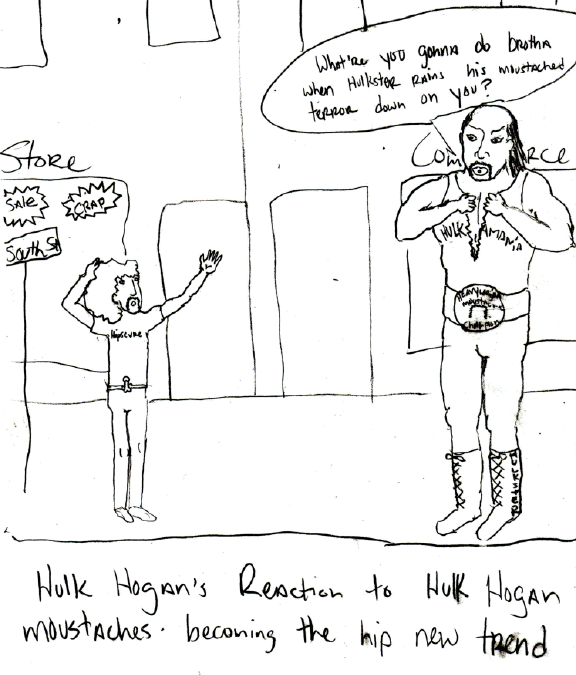 What're you gonna do brotha
when Hulkster RAINS his moustached
terror down on you?
Store
Sale
CRAP
South St
HULKAMANIA
Heavyweight
moustache
champion
Hulk Hogan's Reaction to Hulk Hogan
moustaches. becoming the hip new trend